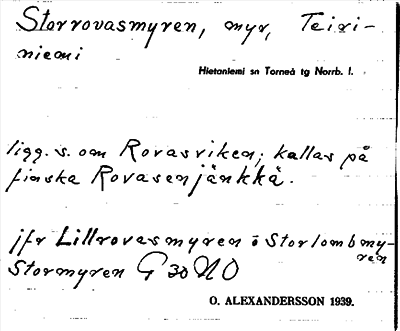 Storrovasmyren, myr, Teiri-
niemi
Hietaniemi sn Torneå tg Norrb. l.
ligg. s. om Rovasviken; kallas på
finska Rovasenjänkkä.
jfr Lillrovasmyren o Storlombmy-
ren
Stormyren G 30 NO
O. ALEXANDERSSON 1939.